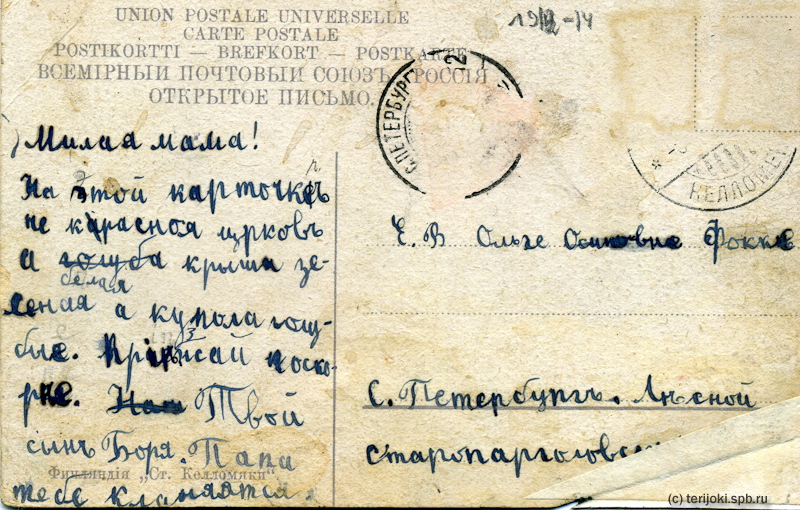 UNION POSTALE UNIVERSELLE
CARTE POSTALE
POSTIKORTTI — BREFKORT — POSTKARTE
ВСЕМІРНЫЙ ПОЧТОВЫЙ СОЮЗЪ. РОССІЯ
ОТКРЫТОЕ ПИСЬМО.
С.ПЕТЕРБУРГ
2
КЕЛЛОМЕ
Милая мама!
На этой карточкѣ
не красная црковъ
а голуба крыша зе-
белая
леная а купола голу-
бые. Пріезжай поско-
рѣе. Твой
сынъ Боря. Папа
тебе кланяется.
Финляндія „Ст. Келломяки"
Е. В Ольге Осиповне Фокке
С. Петербургъ. Лѣсной
старопарголовск
(c) terijoki.spb.ru